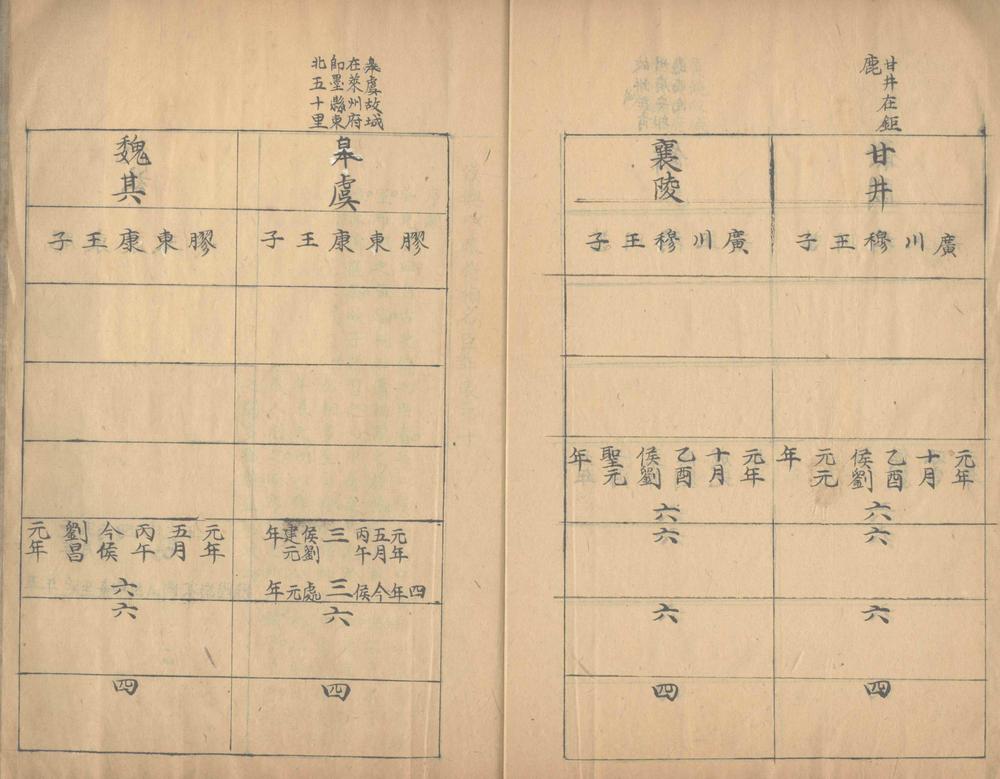 甘井在鉅
鹿
甘井
廣川穆王子
元年
十月
乙酉
侯劉
元元
年
六
六
六
四
襄陵
廣川穆王子
元年
十月
乙酉
侯劉
聖元
年
六
六
六
四
皋虞故城
在萊州府
即墨縣東
北五十里
皋虞
膠東康王子
元年
五月
丙午
侯劉
建元
年
三
四年今侯處元年
三
六
四
魏其
膠東康王子
元年
五月
丙午
今侯
劉昌
元年
六
六
四